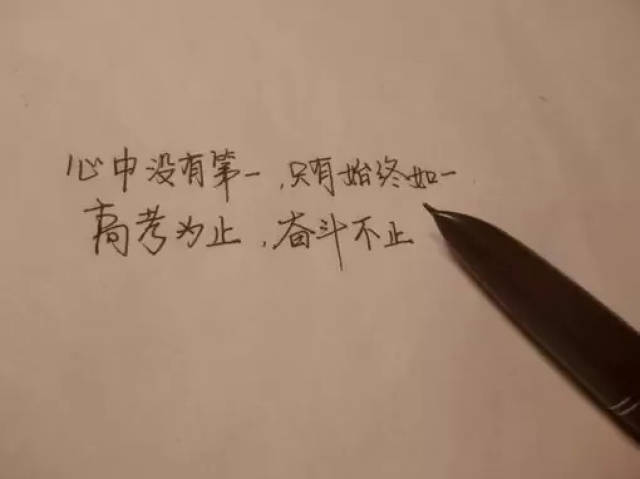 心中没有第一,只有始终如一
高考为止,奋斗不止